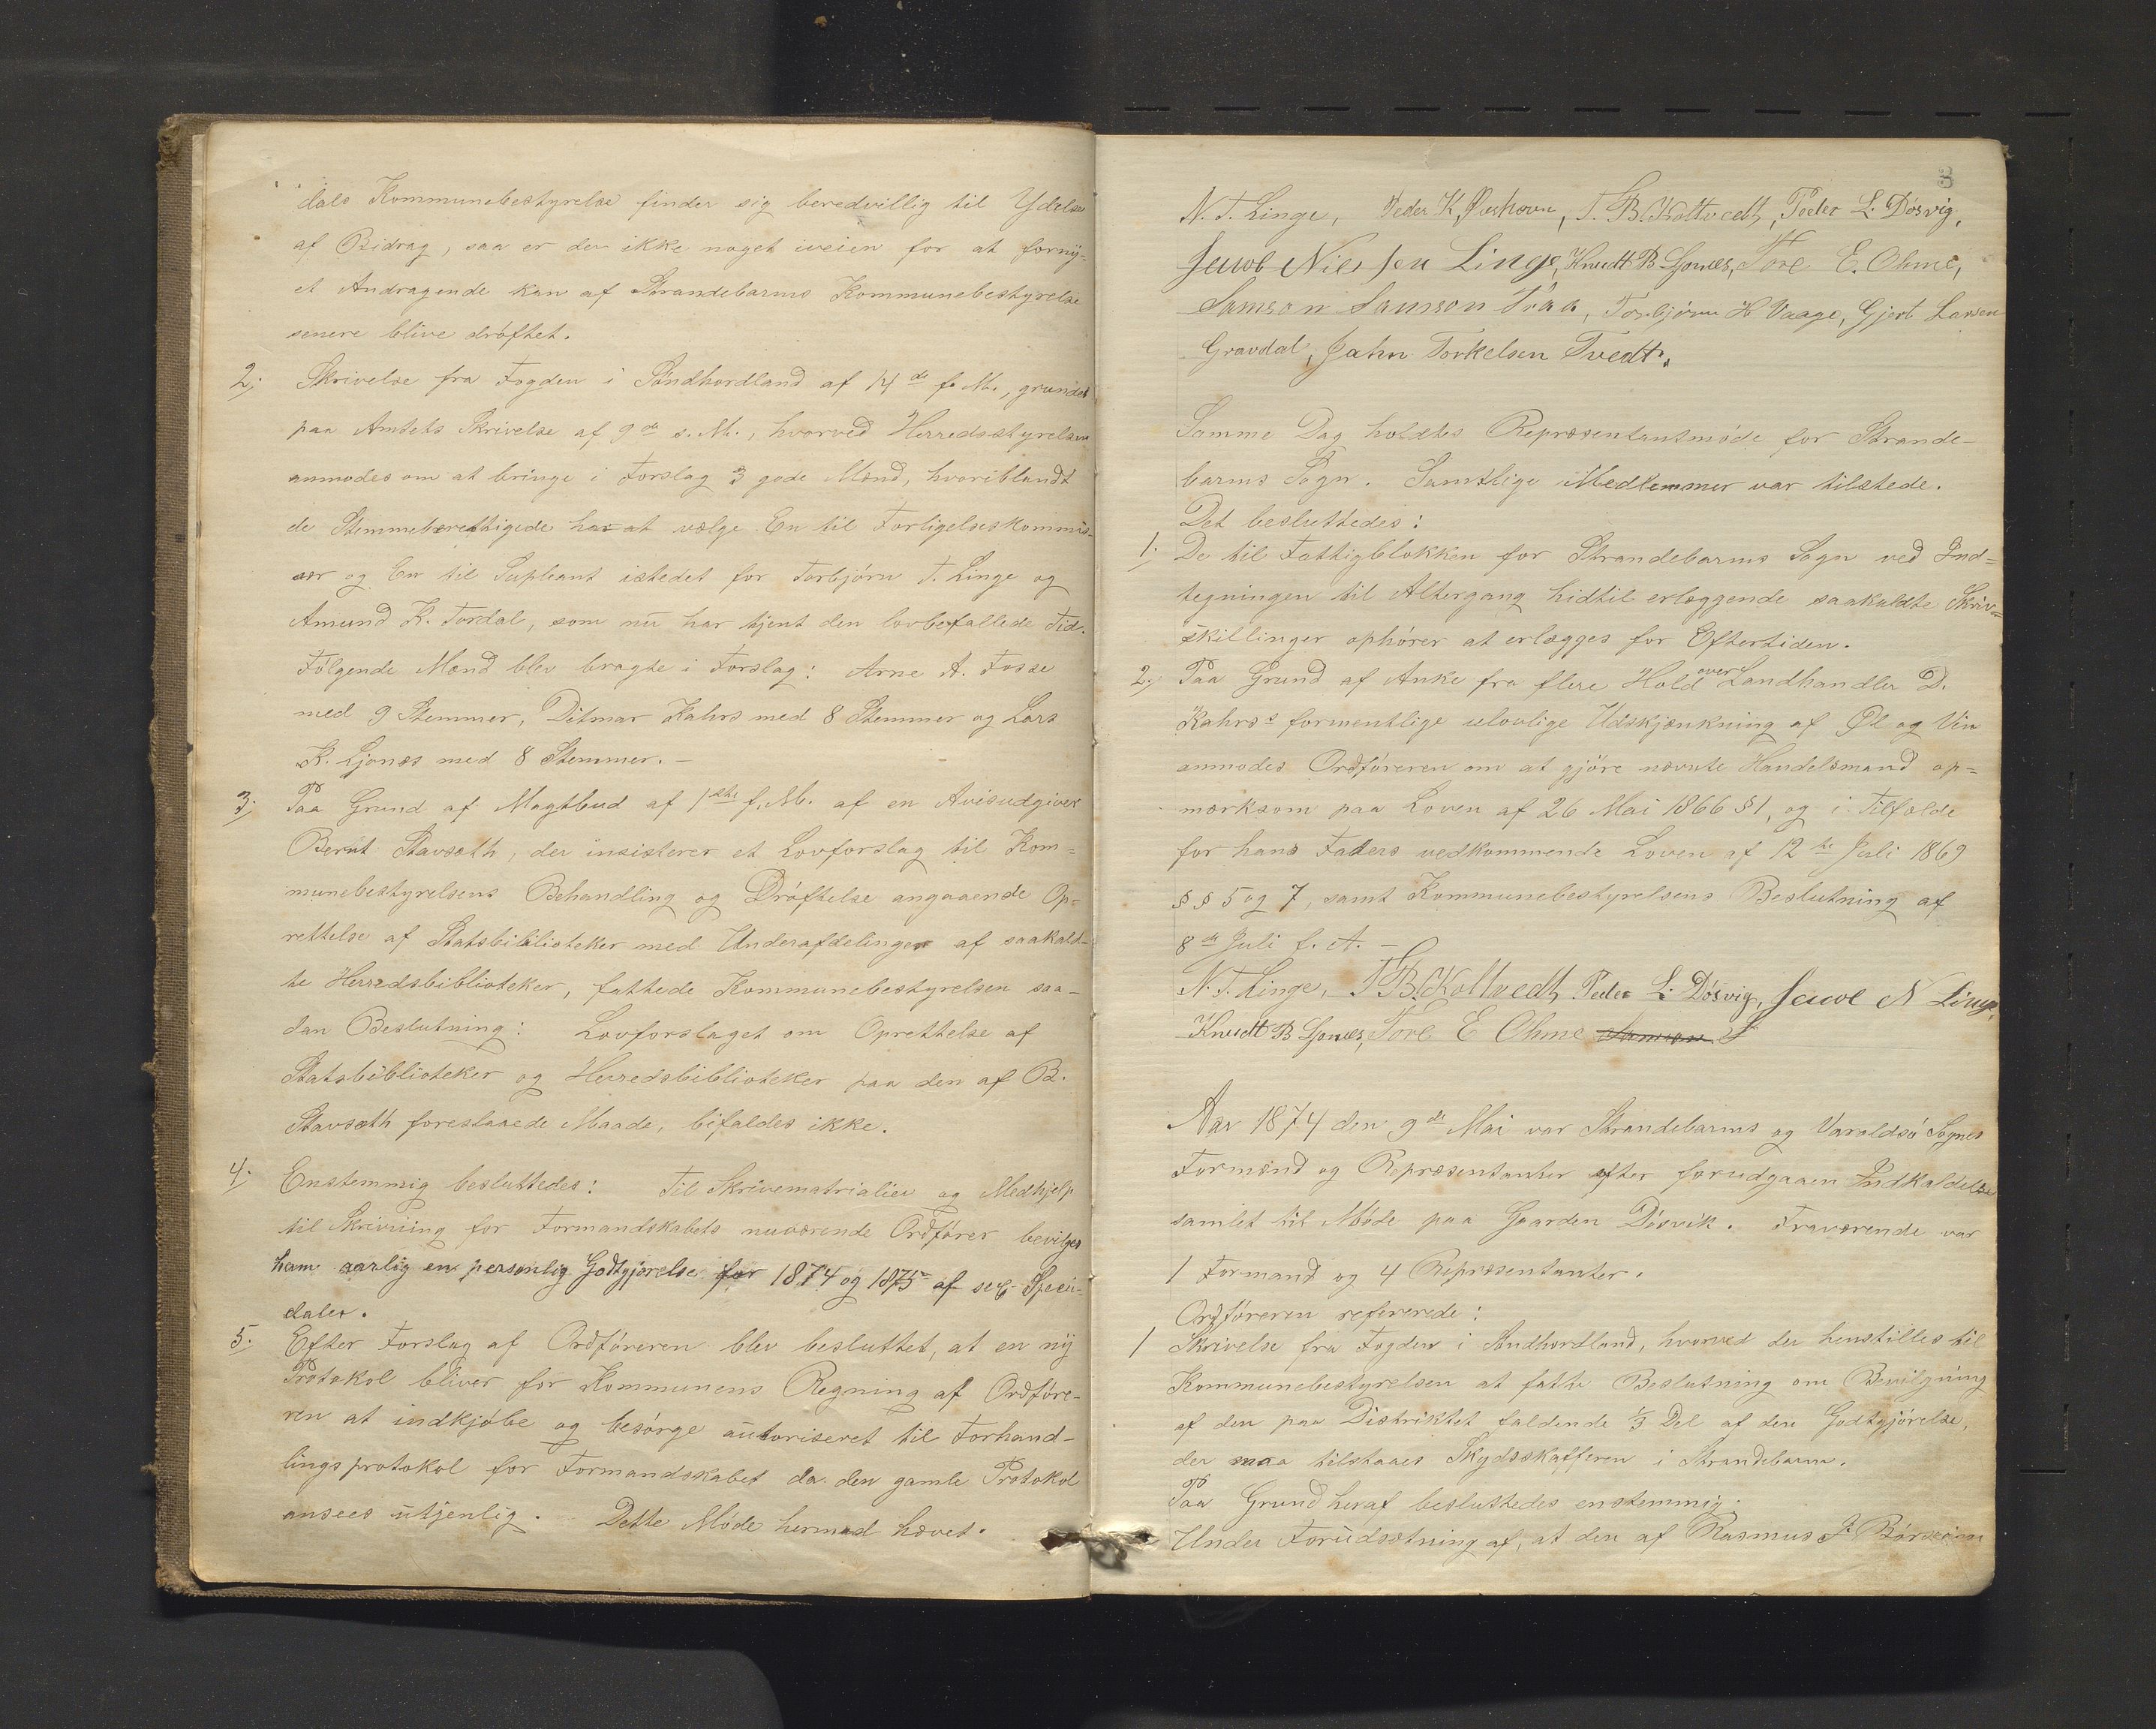 dals Kommunebestyrelse finder sig beredvillig til Ydelse
af Bidrag, saa er der ikke noget iveien for at forny-
et Andragende kan af Strandebarms Kommunebestyrelse
senere blive drøftet.
2, Skrivelse fra Fogden i Søndhordland af 14de f. M., grundet
paa Amtets Skrivelse af 9de s. M., hvorved Herredsstyrelsen
anmodes om at bringe i Forslag 3 gode Mænd, hvoriblandt
de Stemmeberettigede har at vælge En til Forligelseskommis-
ær og En til Supleant istedet for Torbjørn T. Linge og
Amund K. Fordal, som nu har tjent den lovbefallede Tid.
Følgende Mænd blev bragte i Forslag: Arne A. Fosse
med 9 Stemmer, Ditmar Kahrs med 8 Stemmer og Lars
K. Ljonæs med 8 Stemmer. –
3, Paa Grund af Magtbud af 1ste f. M. af en Avisudgiver
Bernt Stavseth, der insisterer et Lovforslag til Kom=
munebestyrelsens Behandling og Drøftelse angaaende Op=
rettelse af Statsbibilioteker med Underafdelinger af saakald-
te Herredsbiblioteker, fattede Kommunebestyrelsen saa-
dan Beslutning: Lovforslaget om Oprettelse af
Statsbiblioteker og Herredsbiblioteker paa den af B.
Stavseth foreslaaede Maade, bifaldes ikke.
4, Enstemmig besluttedes: Til Skrivematrialier og Medhjelp
til Skrivning for Formandskabets nuværende Ordfører bevilges
ham aarlig en personlig Godtgjørelse for 1874 og 1875 af sex Speci-
daler.
5. Efter Forslag af Ordføreren blev besluttet, at en ny
Protokol bliver for Kommunens Regning af Ordføre-
ren at indkjøbe og besørge autoriseret til Forhand-
lingsprotokol for Formandskabet da den gamle Protokol
ansees utjenlig. Dette Møde hermed hævet.
3
N. T. Linge, Peder K. , T. B. Koltvedt, Peder L. Døsvig,
Jacob Nielsen Linge, Knudt B Ljonæs, Tore E. Ohme,
Samson Samson Traa, Torbjørn H Vaage, Gjert Larsen
Gravdal, Jahn Torkelsen Tvedt.
Samme Dag holdtes Repræsentantmøde for Strande-
barms Sogn. Samtlige Medlemmer var tilstede.
Det besluttedes:
1. De til Fattigblokken for Strandebarms Sogn ved Ind=
tegningen til Altergang hidtil erlæggende saakaldte Skriv=
skillinger ophører at erlægges for Eftertiden.
2., Paa Grund af Anke fra flere Hold over Landhandler D.
Kahrs's formentlige ulovlige Udskjænkning af Øl og Vin
anmodes Ordføreren om at gjøre nævnte Handelsmand op=
mærksom paa Loven af 26 Mai 1866 § 1, og i Tilfælde
for hans Faders vedkommende Loven af 12te Juli 1869
§ § 5 og 7, samt Kommunebestyrelsens Beslutning af
8de Juli f. A. –
N. T. Linge, T B. Koltvedt, Peder L. Døsvig, Jacob N Linge,
Knudt B Ljonæs, Tore E Ohme Samson S
Aar 1874 den 9de Mai var Strandebarms og Varaldsø Sognes
Formænd og Repræsentanter efter forudgaaen Indkaldelse
samlet til Møde paa Gaarden Døsvik. Fraværende var
1 Formand og 4 Repræsentanter.
Ordføreren refererede:
1 Skrivelse fra Fogden i Søndhordland, hvorved der henstilles til
Kommunebestyrelsen at fatte Beslutning om Bevilgning
af den paa Distriktet faldende 1/3 Del af den Godtgjørelse,
der maa tilstaaes Skydsskafferen i Strandebarm.
Paa Grund heraf besluttedes enstemmig:
Under Forudsætning af, at den af Rasmus J.